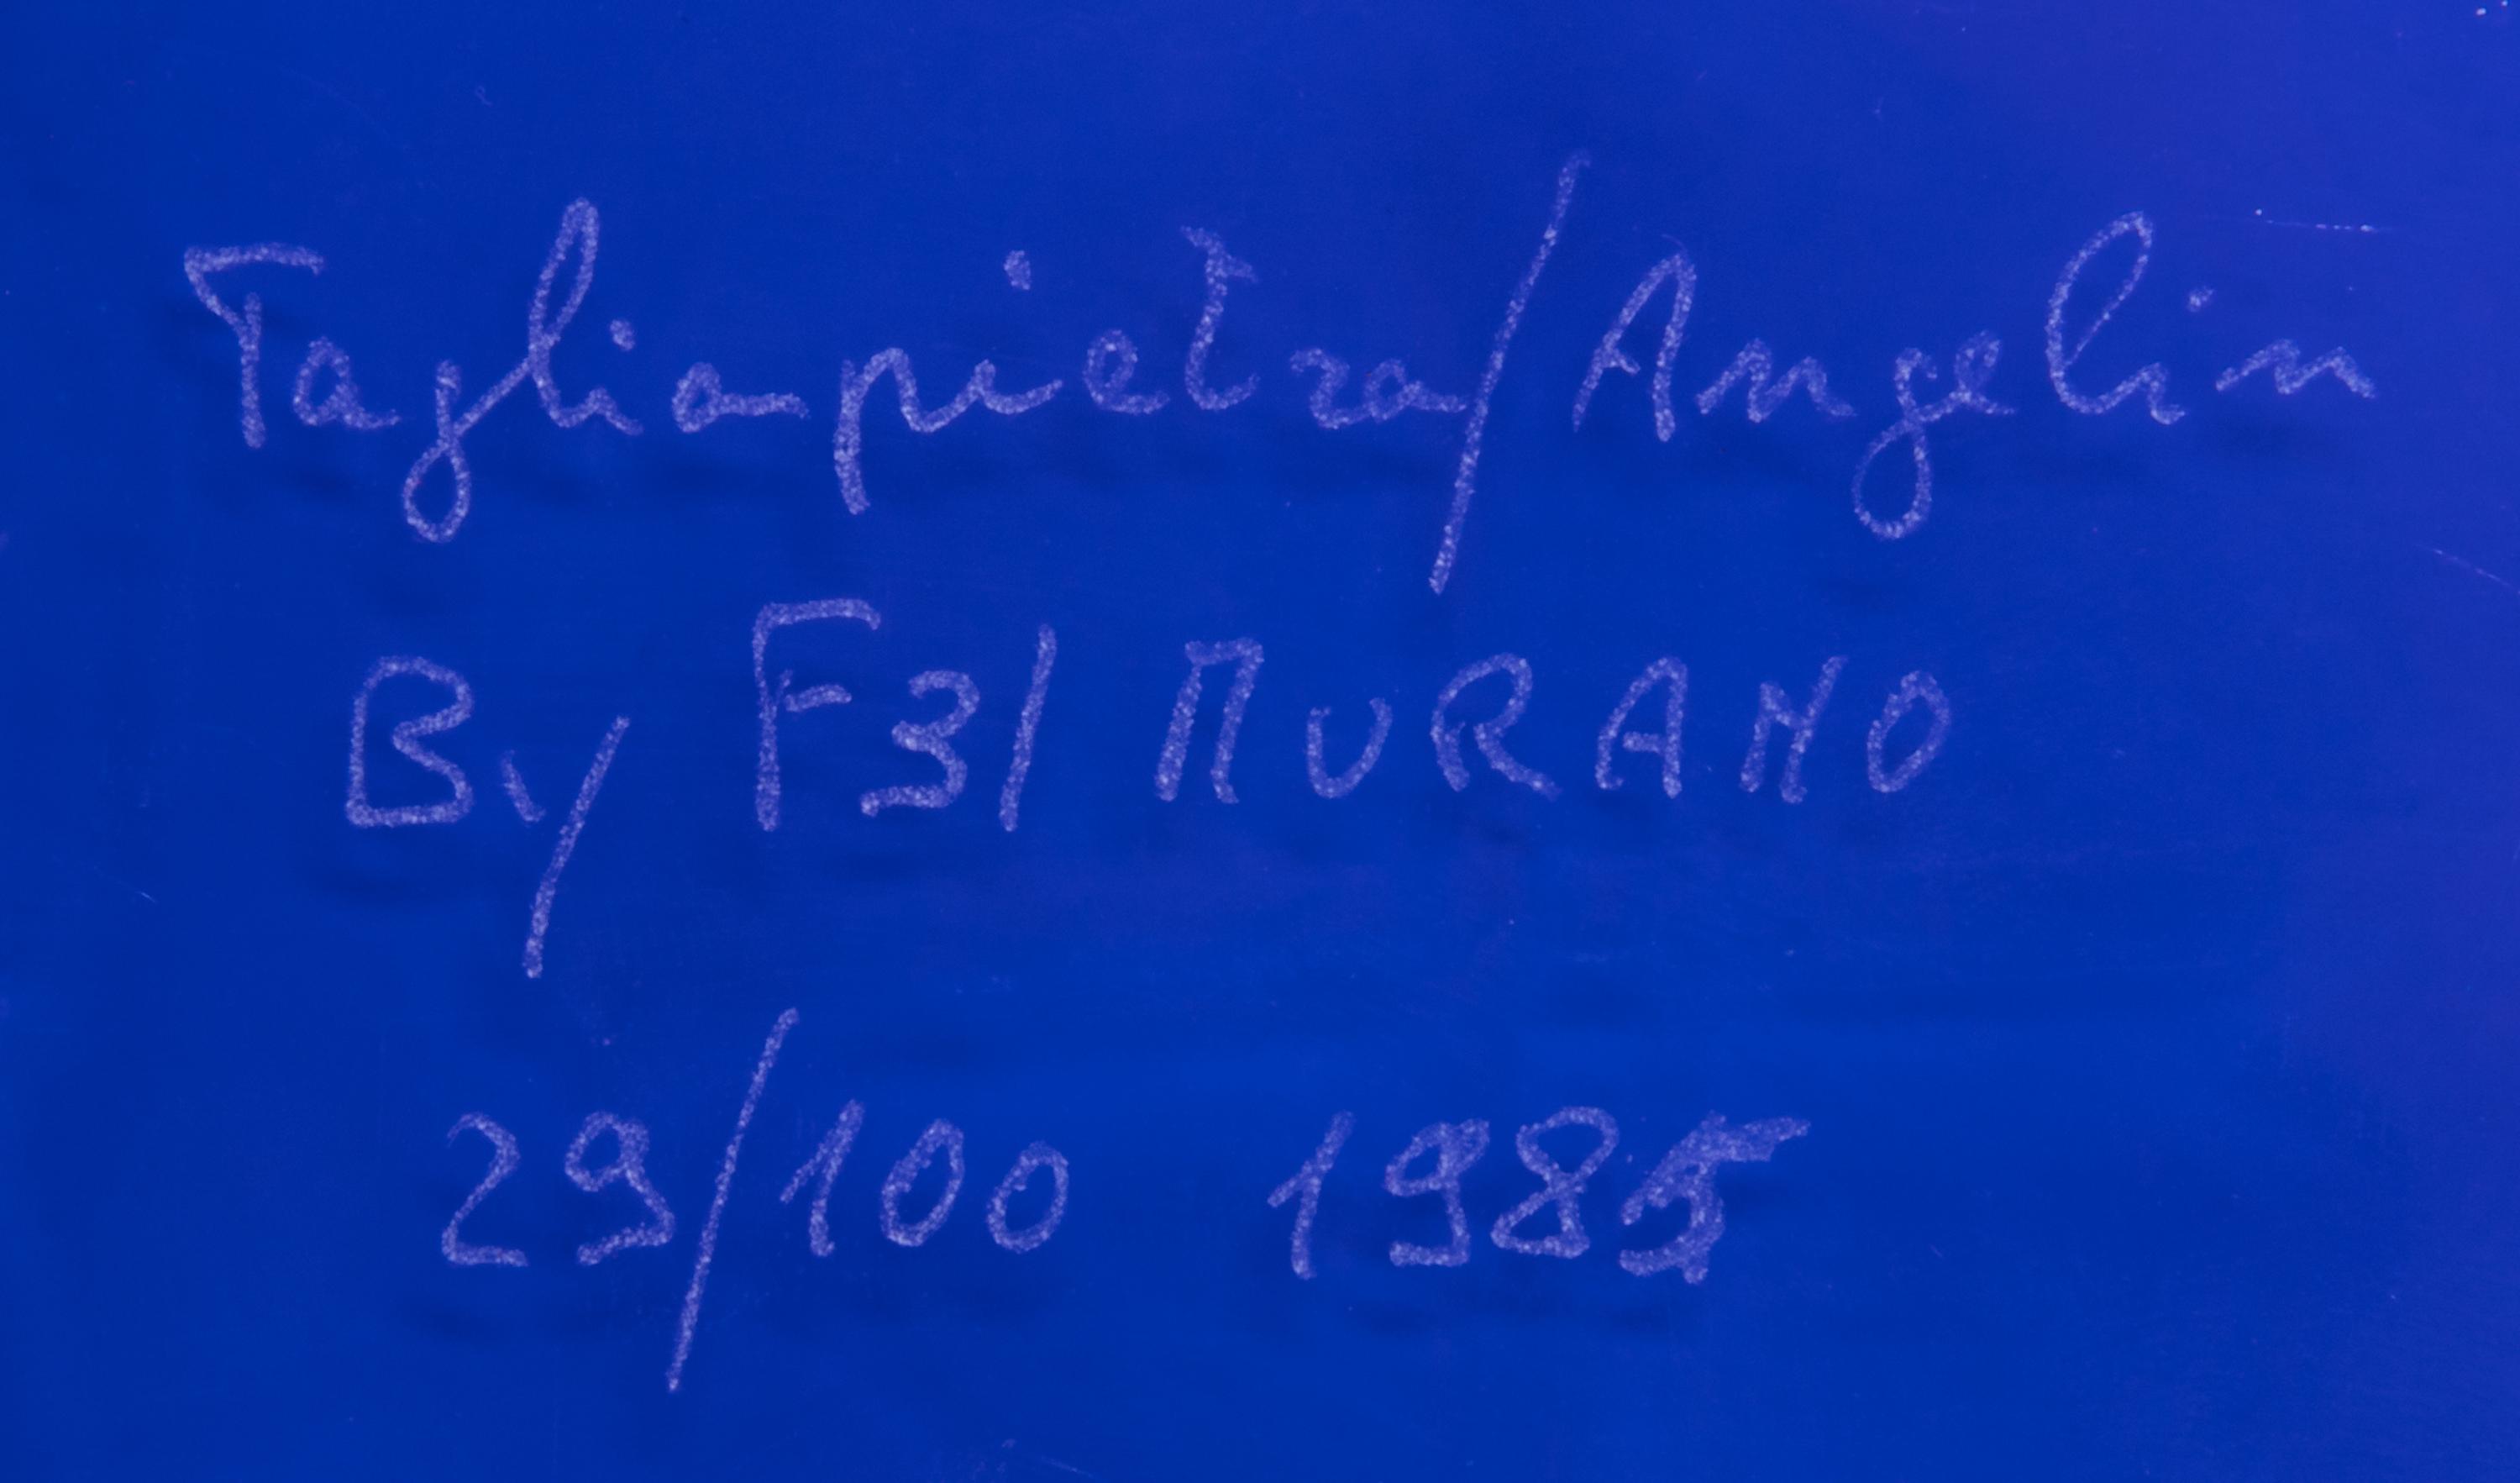 Tagliapietra/Angelin
By F3/ MURANO
29/100 1985